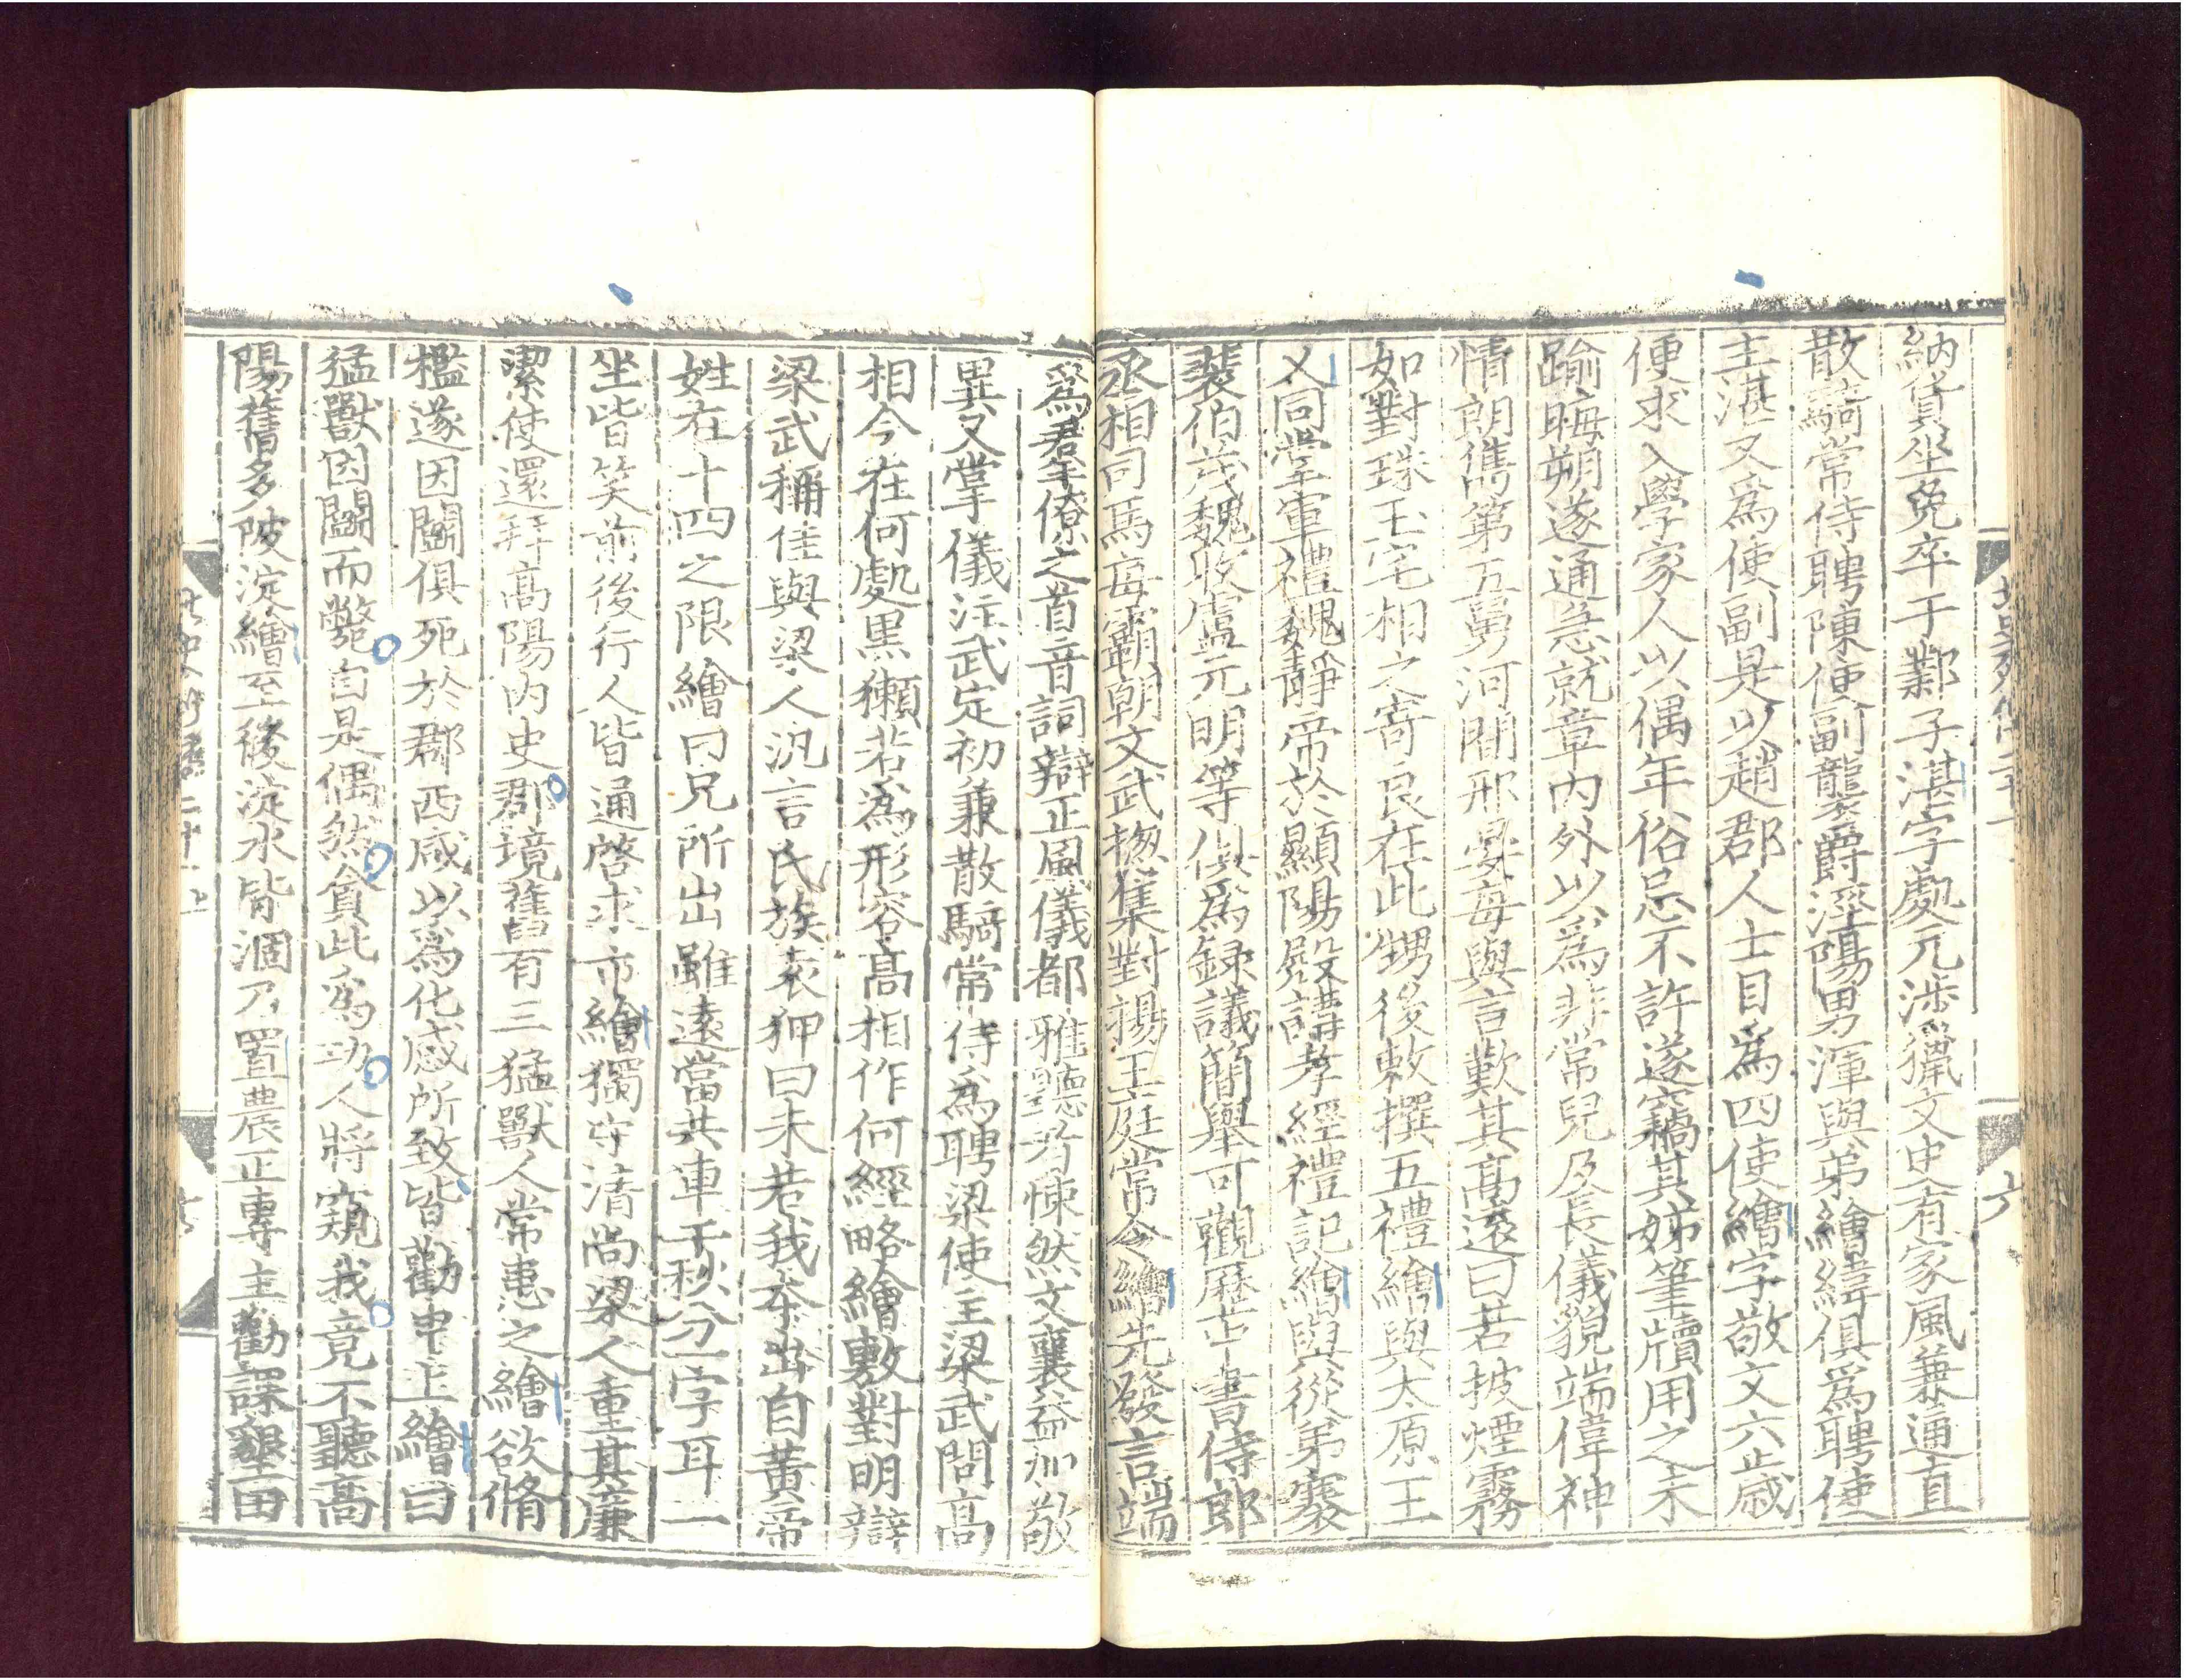 納貨坐免卒于鄴子湛字處元涉獵文史有家風兼通直
散騎常侍聘陳使副襲爵涇陽男渾與弟繪緯俱爲聘使
主湛又爲使副是以趙郡人士目爲四使繪字敬文六歲
便求入學家人以偶年俗忌不許遂竊其姊筆牘用之未
踰晦朔遂通急就章內外以爲非常兒及長儀貌端偉神
情朗儁第五舅河間邢晏每與言歎其高遠曰若披煙霧
如對珠玉宅相之寄良在此甥後敕撰五禮繪與太原王
乂同掌軍禮魏靜帝於顯陽殿講孝經禮記繪與從弟騫
裴伯茂魏收盧元明等俱爲録議簡舉可觀歷中書侍郎
丞相司馬每霸朝文武揔集對揚王庭常令繪先發言端
爲羣僚之首音詞辯正風儀都雅聽者悚然文襄益加敬
異又掌儀注武定初兼散騎常侍爲聘梁使主梁武問高
相今在何處黑獺若爲形容高相作何經略繪敷對明辯
梁武稱佳與梁人汎言氏族袁狎曰未若我本出自黃帝
姓在十四之限繪曰兄所出雖遠當共車千秋分一字耳一
坐皆笑前後行人皆通啓求市繪獨守清尚梁人重其廉
潔使還拜高陽內史郡境舊有三猛獸人常患之繪欲脩
檻遂因鬭俱死於郡西咸以爲化感所致皆勸申上繪曰
猛獸因鬭而斃自是偶然貪此爲功人將窺我竟不聽高
陽舊多陂淀繪至後淀水皆涸乃置農正專主勸課墾田